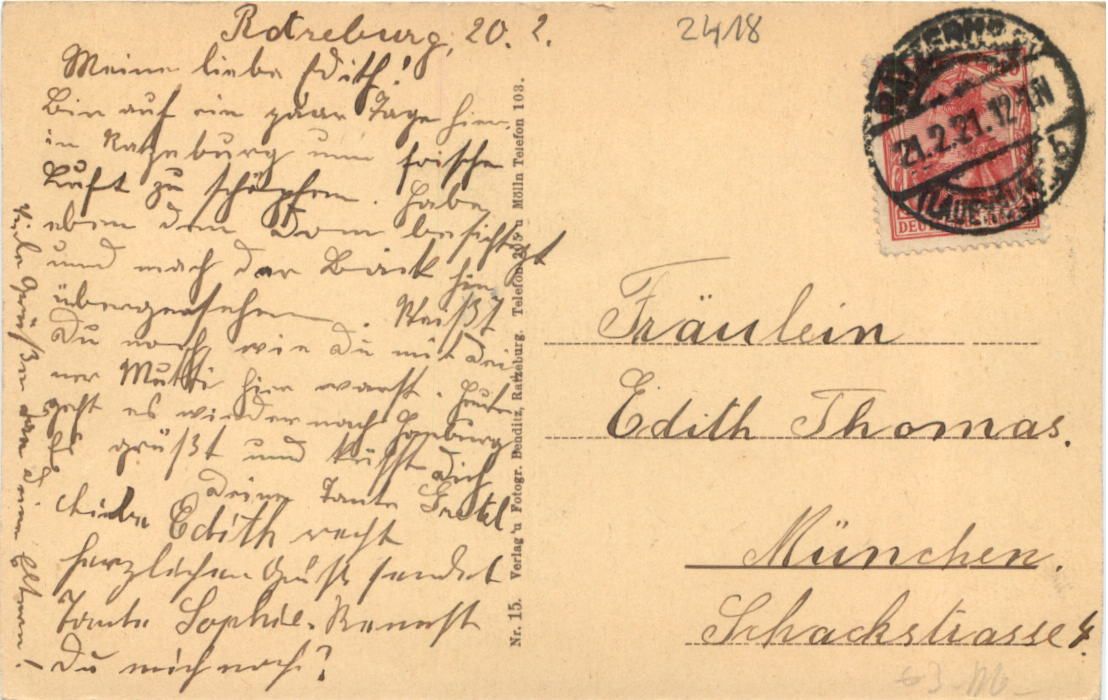 Ratzeburg, 20. 2.
2418
Meine liebe Edith!
Bin auf ein paar Tage hier
in Ratzeburg um frische
Luft zu schöpfen. Habe
eben den Dom besichtigt
und nach der Bäck hin
übergesehen. Weißt
Du noch wie Du mit Dei
ner Mutti hier warst. Heute
geht es wieder nach Hamburg
Es grüßt und küßt Dich
Deine Tante Gretel
Liebe Edith recht
herzlichen Gruß sendet
Tante Sophie. Kennst
Du mich noch?
Viele Grüße an Deine Eltern!
Nr. 15. Verlag u Fotogr. Benditz, Ratzeburg. Telefon 205 u Mölln Telefon 103.
21.2.21.12-1N
(LAUENBURG)
DEUT
Fräulein
Edith Thomas.
München.
Schackstrasse 4.